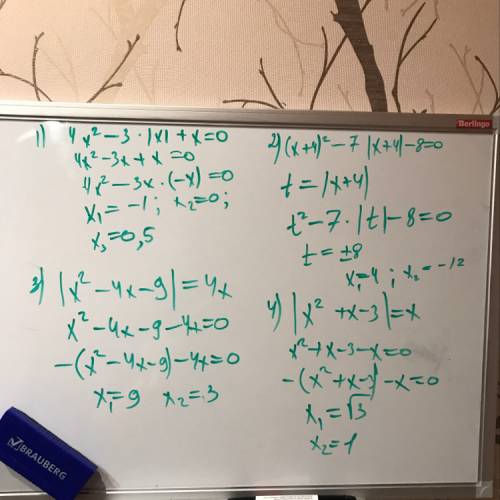 Berlingo
1) 4x² - 3 · |x| + x = 0
4x² - 3x + x = 0
4x² - 3x · (-x) = 0
x₁ = -1; x₂ = 0;
x₃ = 0,5
2) (x+4)² - 7 |x+4| - 8 = 0
t = |x+4|
t² - 7 · |t| - 8 = 0
t = ±8
x₁ = 4; x₂ = -12
3) |x² - 4x - 9| = 4x
x² - 4x - 9 - 4x = 0
-(x² - 4x - 9) - 4x = 0
x₁ = 9 x₂ = 3
4) |x² + x - 3| = x
x² + x - 3 - x = 0
-(x² + x - 3) - x = 0
x₁ = √3
x₂ = 1
BRAUBERG